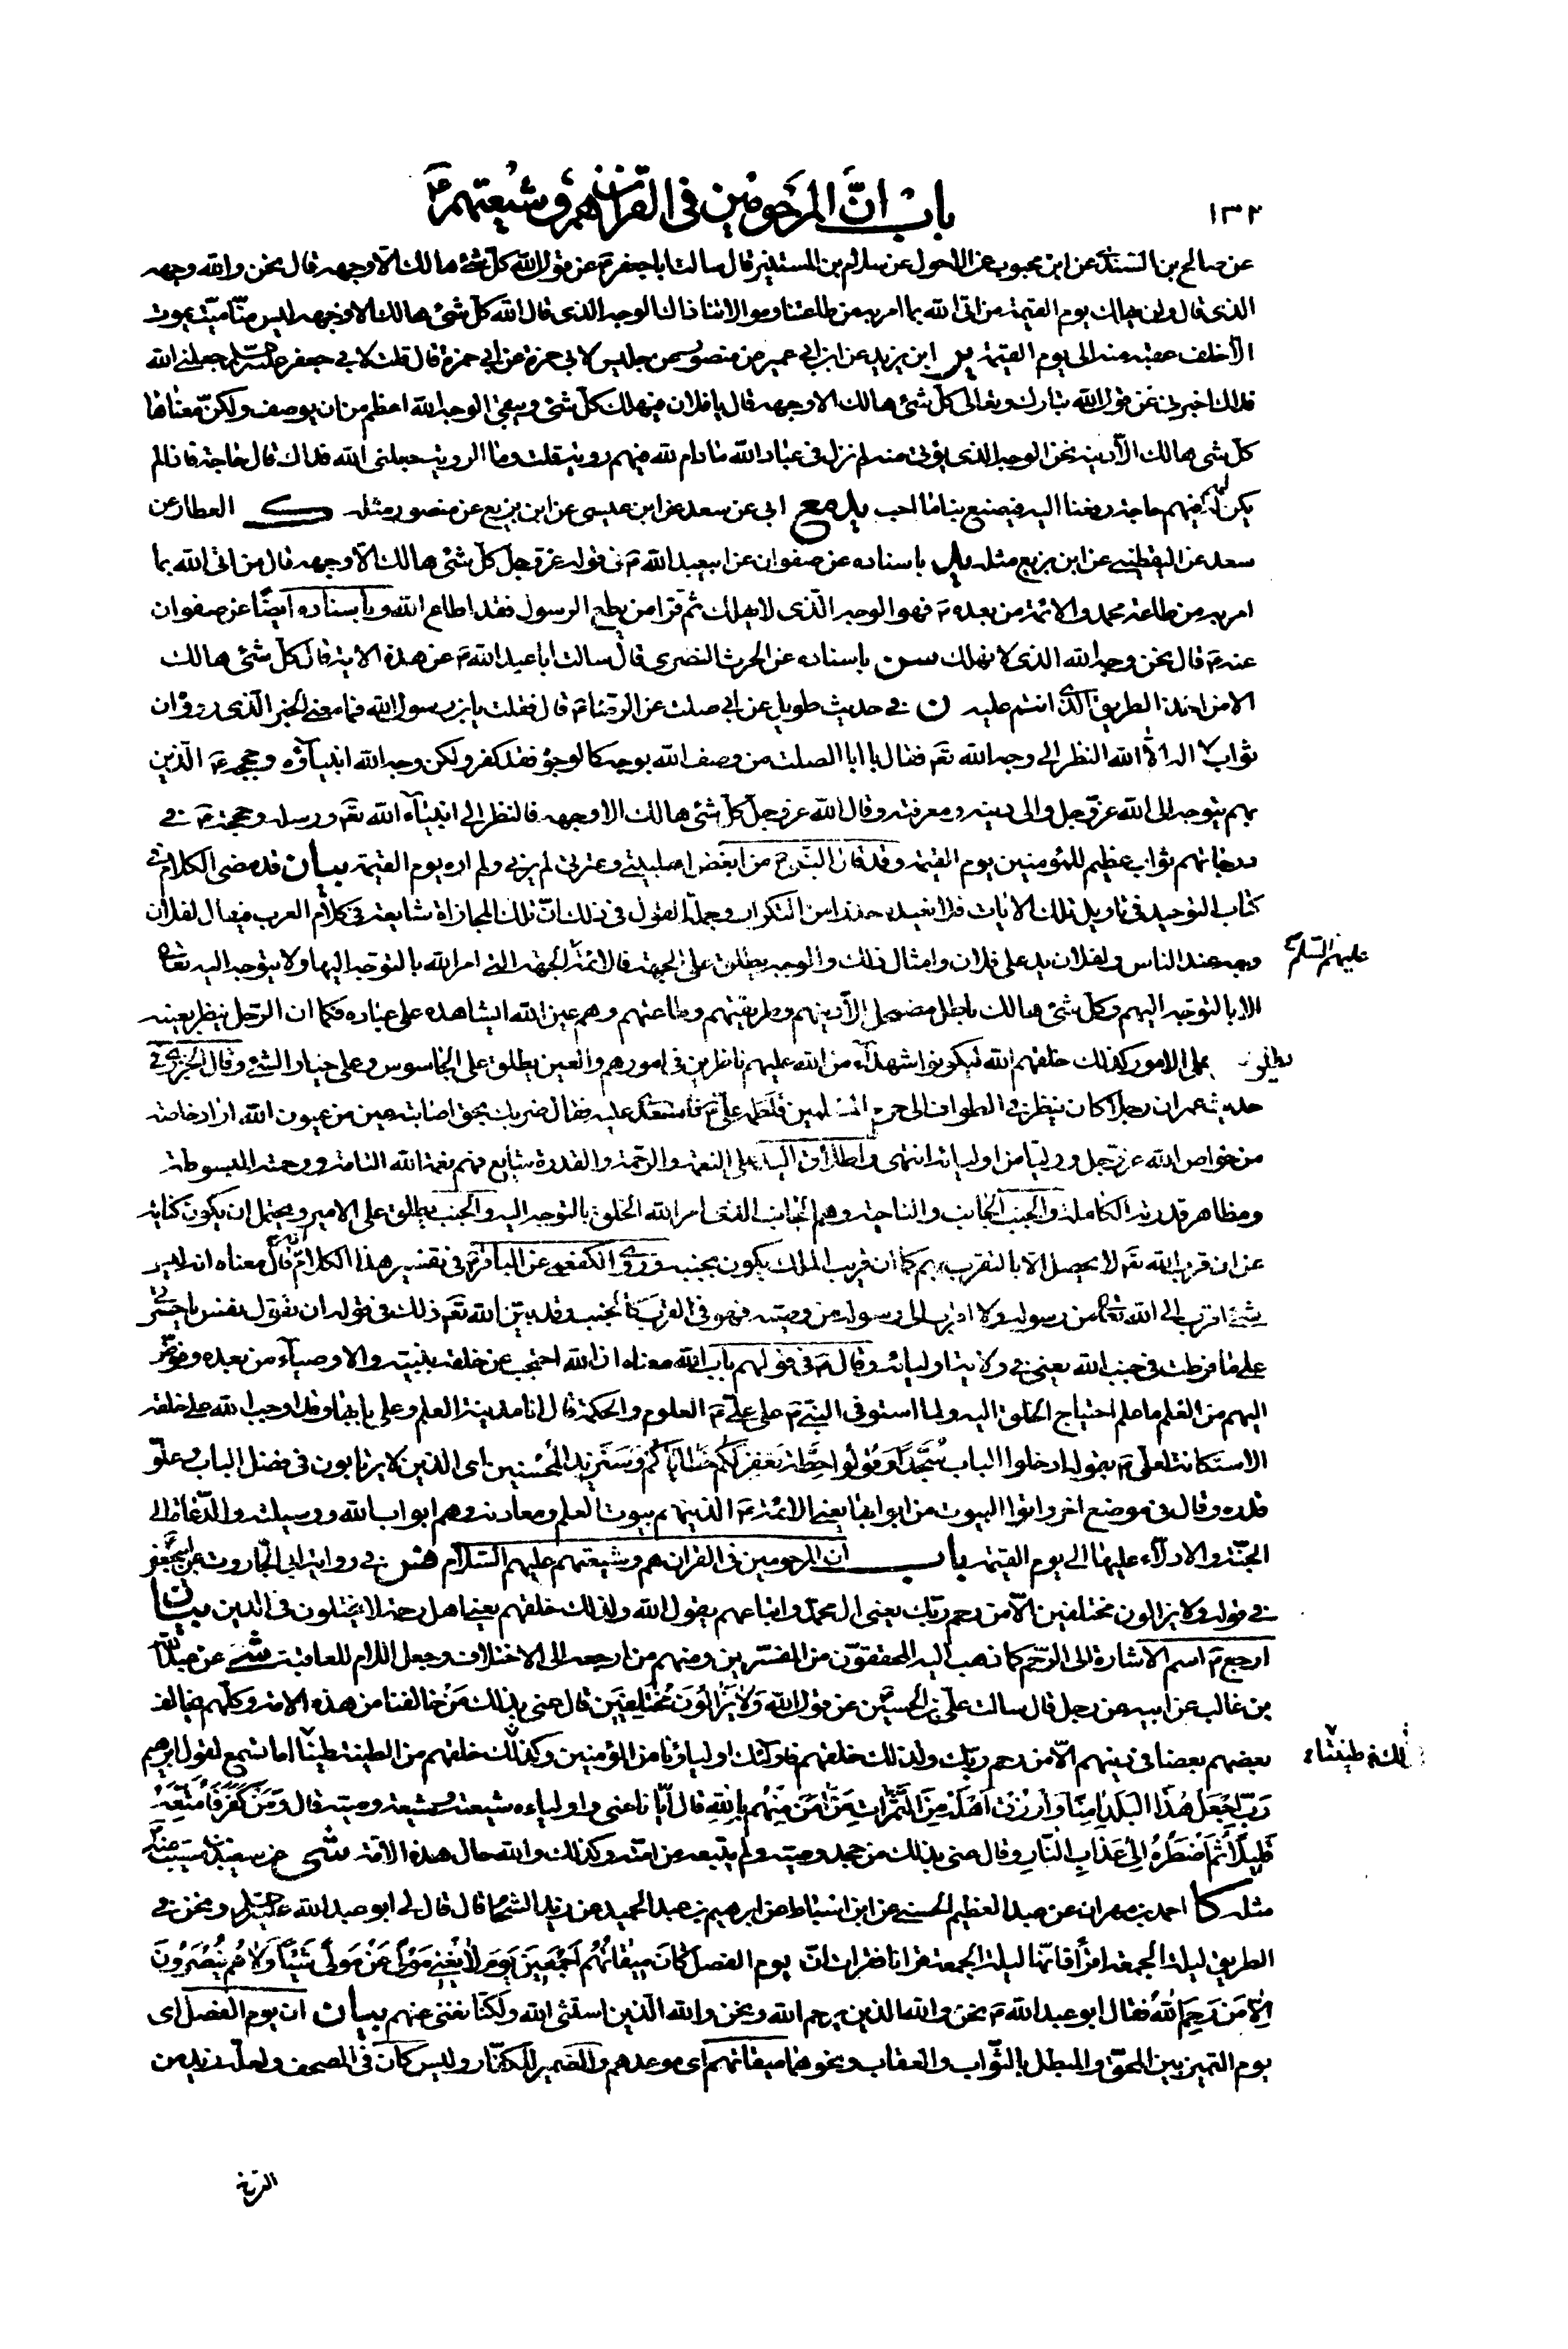 ١٣٢
باب انّ المرحومين فى القران هم و شيعتهم ع
عن صالح بن السندى عن ابن محبوب عن الاحول عن سلام بن المستنير قال سالت ابا جعفر ع عن قول الله كل شئ هالك الا وجهه قال نحن والله وجهه
الذى قال ولن يهلك يوم القيمة من اتى الله بما امر به من طاعتنا وموالاتنا ذاك الوجه الذى قال الله كل شئ هالك الا وجهه ليس منّا ميّت يموت
الا خلف عقبه منه الى يوم القيمة ير ابن يزيد عن ابن ابى عمير عن منصور عن جليس لابى حمزة عن ابى حمزة قال قلت لابى جعفر جعلنى الله
فداك اخبرنى عن قول الله تبارك وتعالى كل شئ هالك الا وجهه قال يا فلان فيهلك كل شئ ويبقى الوجه الله اعظم من ان يوصف ولكن معناها
كل شئ هالك الا دينه نحن الوجه الذى يؤتى منه لم نزل فى عباد الله ما دام لله فيهم روية قلت وما الروية جعلنى الله فداك قال حاجة فاذا لم
يكن له فيهم حاجة رفعنا اليه فيصنع بنا ما احب يد مع ابى عن سعد عن ابن عيسى عن ابن بزيع عن منصور مثله ك العطار عن
سعد عن اليقطينى عن ابن بزيع مثله يد باسناده عن صفوان عن ابيعبد الله ع فى قوله عزّ وجل كل شئ هالك الا وجهه قال من اتى الله بما
امر به من طاعة محمد والائمة من بعده ع فهو الوجه الّذى لا يهلك ثم قرا من يطع الرسول فقد اطاع الله وباسناده ايضًا عن صفوان
عنه ع قال نحن وجه الله الذى لا يهلك سن باسناده عن الحرث النضرى قال سالت ابا عبد الله ع عن هذه الاية قال كل شئ هالك
الا من اخذ الطريق الذى انتم عليه ن فى حديث طويل عن ابى صلت عن الرضا ع قال فقلت يا بن رسول الله فما معنى الخبر الّذى رووه ان
ثواب لا اله الا الله النظر الى وجه الله تع فقال يا ابا الصلت من وصف الله بوجه كالوجوه فقد كفر ولكن وجه الله انبياؤه وحججه ع الّذين
بهم يتوجه الى الله عزّ وجل والى دينه ومعرفته وقال الله عز وجلّ كلّ شئ هالك الا وجهه فالنظر الى انبياء الله تع ورسله وحججه ع فى
درجاتهم ثواب عظيم للمؤمنين يوم القيمة وقد قال النبى ص من ابغض اهل بيتى وعترتى لم يرنى ولم اره يوم القيمة بيان قد مضى الكلام فى
كتاب التوحيد فى تاويل تلك الايات فلا نعيده حذرا من التكرار وجملة القول فى ذلك انّ تلك المجازاة شايعة فى كلام العرب فيقال لفلان
وجه عند الناس ولفلان يد على فلان وامثال ذلك والوجه يطلق على الجهة فالائمة الجهة التى امر الله بالتوجه اليها ولا يتوجه اليه تعالى
عليهم السلم
الا بالتوجه اليهم وكل شئ هالك باطل مضمحل الا دينهم وطريقتهم وطاعتهم وهم عين الله اى شاهده على عباده فكما ان الرجل ينظر بعينه
ليطلع على الامور كذلك خلقهم الله ليكونوا شهداء من الله عليهم ناظرين فى امورهم والعين يطلق على الجاسوس وعلى خيار الشئ وقال الجزرى فى
حديث عمر ان رجلا كان ينظر فى الطواف الى حرم المسلمين فلطمه على ع فاستعدى عليه فقال ضربك بحق اصابته عين من عيون الله اراد خاصة
من خواص الله عزّ وجل ووليّا من اوليائه انتهى واطلاق اليد على النعمة والرحمة والقدرة شايع فهم نعمة الله التامة ورحمته المبسوطة
ومظاهر قدرته الكاملة والجنب الجانب والناحية وهم الجانب الذى امر الله الخلق بالتوجه اليه والجنب يطلق على الامير ويحتمل ان يكون كناية
عن ان قرب الله تع لا يحصل الا بالتقرب بهم كما ان قريب الملك يكون بجنبه وروى الكفعمى عن الباقر ع فى تفسير هذا الكلام انه قال معناه انه ليس
شئ اقرب الى الله تعالى من رسوله ولا اقرب الى رسوله من وصيه فهو فى القرب كالجنب وقد بيّن الله تع ذلك فى قوله ان تقول نفس يا حسرتى
على ما فرطت فى جنب الله يعنى فى ولاية اوليائه وقال ع فى قولهم باب الله معناه ان الله احتجب عن خلقه بنبيه والاوصياء من بعده وفوّض
اليهم من العلم ما علم احتياج الخلق اليه ولما استوفى النبى ص على على ع العلوم والحكمة قال انا مدينة العلم وعلى بابها وقد اوجب الله على خلقه
الاستكانة لعلى ع بقوله ادخلوا الباب سُجَّدًا وَقُولُوا حِطَّةٌ نَغْفِرْ لَكُمْ خَطَايَاكُمْ وَسَنَزِيدُ الْمُحْسِنِينَ اى الذين لا يرتابون فى فضل الباب وعلوّ
قدره وقال فى موضع اخر واتوا البيوت من ابوابها يعنى الائمة ع الذين هم بيوت العلم ومعادنه وهم ابواب الله ووسيلته والدّعاة الى
الجنّة والادلّاء عليها الى يوم القيمة باب ان المرحومين فى القران هم وشيعتهم عليهم السّلام فس فى رواية ابى الجارود عن ابيجعفر
فى قوله ولا يزالون مختلفين الّا من رحم ربّك يعنى ال محمّد واتباعهم يقول الله ولذلك خلقهم يعنى اهل رحمة لا يختلفون فى الدين بيان
ارجع ع اسم الاشارة الى الرّحم كما ذهب اليه المحققون من المفسّرين ومنهم من ارجعه الى الاختلاف وجعل اللام للعاقبة شى عن عبد الله
بن غالب عن ابيه عن رجل قال سالت علىّ بن الحسين عن قول الله وَلَا يَزَالُونَ مُخْتَلِفِينَ قال عنى بذلك مَنْ خالفنا من هذه الامة وكلهم يخالف
بعضهم بعضا فى دينهم الّا من رحم ربّك ولذلك خلقهم فاولئك اولياؤنا من المؤمنين وكذلك خلقهم من الطينة طيبًا اما تسمع لقول ابرهيم
رَبِّ اجْعَلْ هَذَا الْبَلَدَ آمِنًا وَارْزُقْ اَهْلَهُ مِنَ الثَّمَرَاتِ مَنْ آمَنَ مِنْهُمْ بِاللهِ قال ايّانا عنى واولياءه شيعته وشيعة وصيه قال وَمَنْ كَفَرَ فَاُمَتِّعُهُ
قَلِيلًا ثُمَّ اَضْطَرُّهُ اِلَى عَذَابِ النَّارِ وقال عنى بذلك من جحد وصيه ولم يتبعه من امته وكذلك والله حال هذه الامّة شى عن سعيد بن مسيب عنه
مثله كا احمد بن مهران عن عبد العظيم الحسنى عن ابن اسباط عن ابرهيم بن عبد الحميد عن زيد الشحام قال قال لى ابو عبد الله ونحن فى
الطريق ليلة الجمعة اقرأ فانّها ليلة الجمعة قرانا فقرات انّ يوم الفصل كَانَ مِيقَاتُهُمْ اَجْمَعِينَ يَوْمَ لَا يُغْنِى مَوْلًى عَنْ مَوْلًى شَيْئًا وَلَا هُمْ يُنْصَرُونَ
اِلَّا مَنْ رَحِمَ اللهُ فقال ابو عبد الله ع نحن والله الذين يرحم الله ونحن والله الّذين استثنى الله ولكنّا نغنى عنهم بيان ان يوم الفصل اى
يوم التميز بين المحقّ والمبطل بالثّواب والعقاب ونحوهما ميقاتهم اى موعدهم والضمير للكفّار وليس كان فى المصحف ولعلّه زيد من